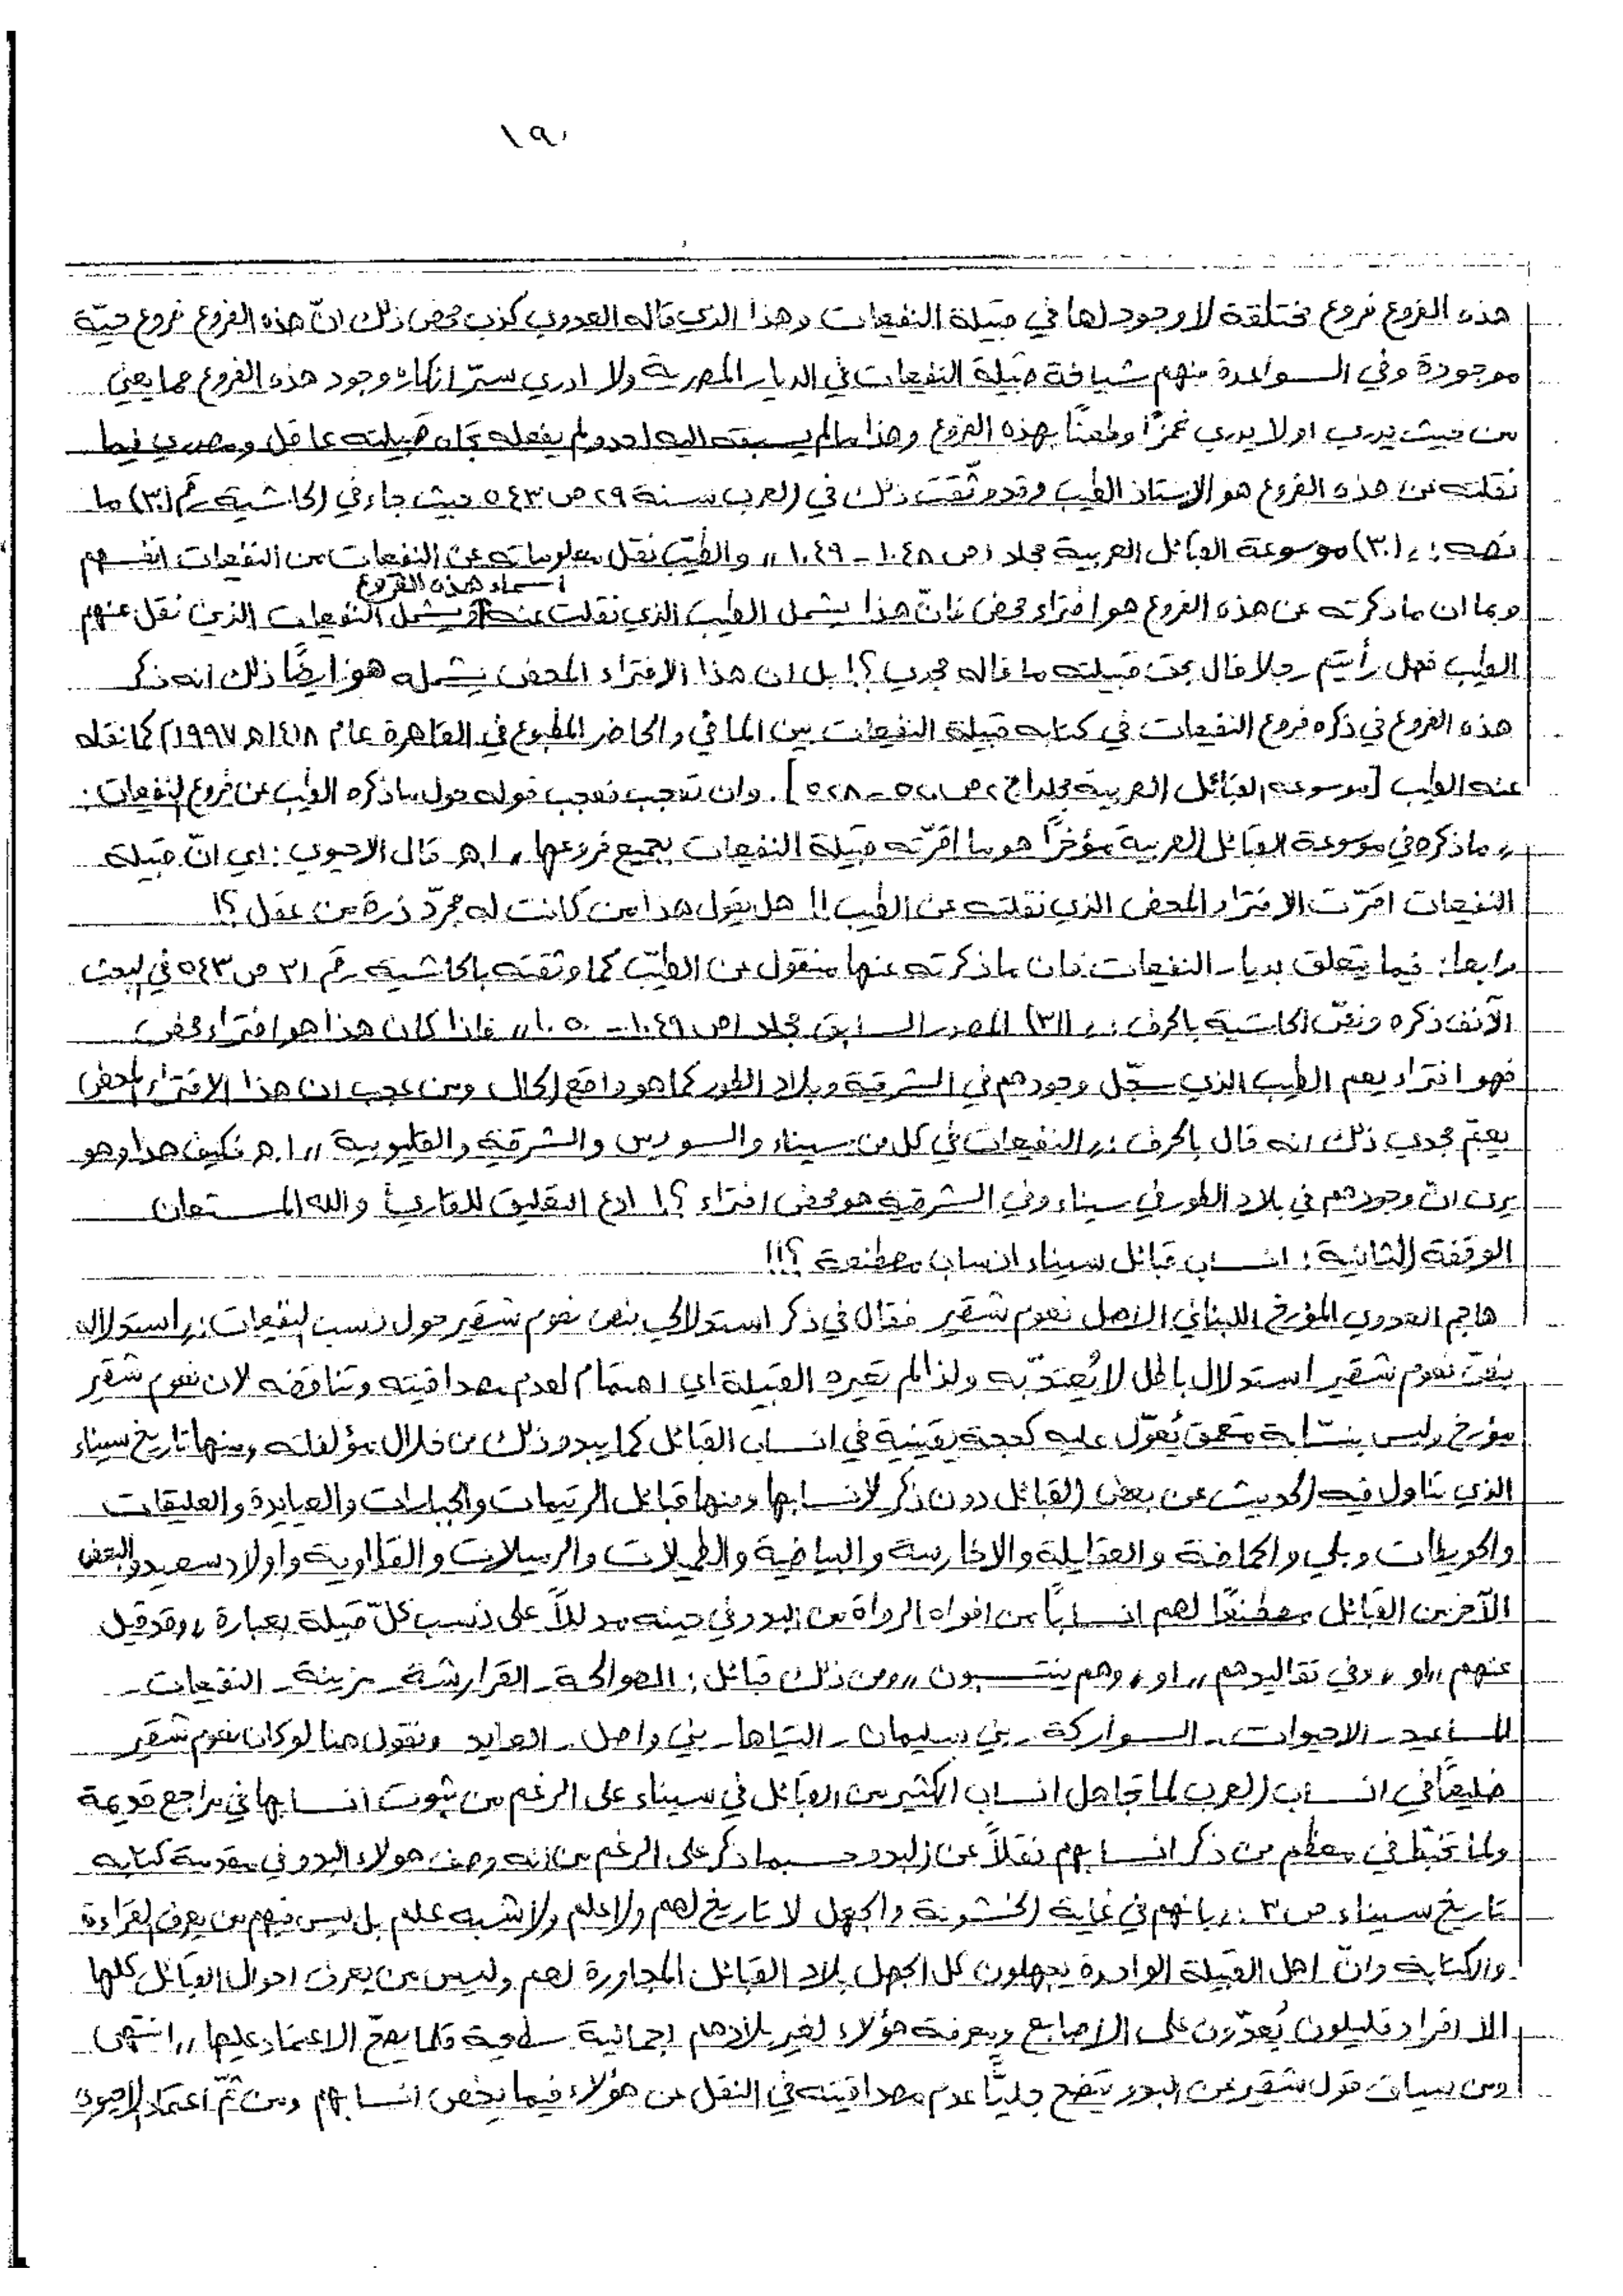 ١٩٠
هذه الفروع فروع مختلقة لا وجود لها في قبيلة النفيعات وهذا الذي قاله العدوي كذب محض ذلك انّ هذه الفروع فروع حيّة
موجودة وفي السواعدة منهم شياخة قبيلة النفيعات في الديار المصرية ولا ادري سرّ انكاره وجود هذه الفروع مما يعني
من حيث يدري او لا يدري غمزًا وطعنًا بهذه الفروع وهذا مالم يسبقه اليه احد ولم يفعله تجاه قبيلته عاقل ومصدري فيما
نقلته عن هذه الفروع هو الاستاذ الطيب وقد وثّقت ذلك في (العرب سنة ٢٩ ص ٥٤٣ حيث جاء في الحاشية رقم (٣٠) ما
نصه: ,, (٣٠) موسوعة القبائل العربية مجلد ١ ص ١٠٤٨ - ١٠٤٩ ,, والطيّب نقل معلوماته عن النفيعات من النفيعات انفسهم
اسماء هذه الفروع
وبما ان ما ذكرته عن هذه الفروع هو افتراء محض فانّ هذا يشمل الطيب الذي نقلت عنه ويشمل النفيعات الذين نقل عنهم
الطيب فهل رأيتم رجلا قال بحق قبيلته ما قاله مجدي ؟! بل ان هذا الافتراء المحض يشمله هو ايضًا ذلك انه ذكر
هذه الفروع في ذكره فروع النفيعات في كتابه قبيلة النفيعات بين الماضي والحاضر المطبوع في القاهرة عام ١٤١٨هـ ١٩٩٧) كما نقله
عنه الطيب [موسوعة القبائل العربية مجلد ٢ ص ٥٢٠ - ٥٢٨] . وان تعجب فعجب قوله حول ما ذكره الطيب عن فروع النفيعات :
,, ما ذكره في موسوعة القبائل العربية مؤخرًا هو ما اقرّته قبيلة النفيعات بجميع فروعها ,, ا.هـ قال الاحيوي : اي انّ قبيلة
النفيعات اقرّت الافتراء المحض الذي نقلته عن الطيب !! هل يقول هذا من كانت له مجرّد ذرة من عقل ؟!
رابعا: فيما يتعلق بديار النفيعات فان ما ذكرته عنها منقول عن الطيّب كما وثقته بالحاشية رقم ٣١ ص ٥٤٣ في البحث
الآنف ذكره ونصّ الحاشية بالحرف : ,, (٣١) المصدر السابق مجلد ١ ص ١٠٤٩ - ١٠٥٠ ,, فاذا كان هذا هو افتراء محض
فهو افتراء يعم الطيب الذي سجّل وجودهم في الشرقية وبلاد الطور كما هو واقع الحال ومن عجب ان هذا الافتراء المحض
يعمّ مجدي ذلك انه قال بالحرف : ,, النفيعات في كل من سيناء والسويس والشرقية والقليوبية ,, ا.هـ فكيف هذا وهو
يرى انّ وجودهم في بلاد الطور في سيناء وفي الشرقية هو محض افتراء ؟! ادع التعليق للقارئ والله المستعان
الوقفة الثانية : انساب قبائل سيناء انساب مصطنعة ؟!!
هاجم العدوي المؤرخ اللبناني الاصل نعوم شقير فقال في ذكر استدلالي بنص نعوم شقير حول نسب النفيعات: ,, استدلاله
بنصّ نعوم شقير استدلال باطل لا يُعتدّ به ولذا لم تعيره القبيلة اي اهتمام لعدم مصداقيته وتناقضه لان نعوم شقير
مؤرخ وليس بنسّابة متعمق يُعوّل عليه كحجة يقينية في انساب القبائل كما يبدو ذلك من خلال مؤلفاته ومنها تاريخ سيناء
الذي تناول فيه الحديث عن بعض القبائل دون ذكر لانسابها ومنها قبائل الرتيمات والجبارات والعيايدة والعليقات
والحويطات وبلي والحماضة والعقايلة والاخارسة والبياضية والطميلات والرميلات والقطاوية واولاد سعيد والبعض
الآخر من القبائل مصطنعًا لهم انسابًا من افواه الرواة من البدو في حينه مدللاً على نسب كلّ قبيلة بعبارة ,, وقد قيل
عنهم ,, او ,, وفي تقاليدهم ,, او ,, وهم ينتسبون ,, ومن ذلك قبائل : الصوالحة - القرارشة - مزينة - النفيعات -
المساعيد - الاحيوات - السواركة - بني سليمان - التياها - بني واصل - العوايد ونقول هنا لو كان نعوم شقير
ضليعًا في انساب العرب لما تجاهل انساب الكثير من القبائل في سيناء على الرغم من ثبوت أنسابها في مراجع قديمة
ولما تخبّط في معظم من ذكر انسابهم نقلاً عن البدو حسبما ذكر على الرغم من انه وصف هولاء البدو في مقدمة كتابه
تاريخ سيناء ص ٣ : ,, بانهم في غاية الخشونة والجهل لا تاريخ لهم ولا علم ولا شبه علم بل ليس فيهم من يعرف القراءة
والكتابة وانّ اهل القبيلة الواحدة يجهلون كل الجهل بلاد القبائل المجاورة لهم وليس من يعرف احوال القبائل كلها
الا افراد قليلون يُعدّون على الاصابع ومعرفة هؤلاء لغير بلادهم اجمالية سطحية قلما يصحّ الاعتماد عليها ,, انتهى
ومن سياق قول شقير عن البدو يتضح جليًّا عدم مصداقيته في النقل عن هؤلاء فيما يخص انسابهم ومن ثمّ اعتماد الاحيوي